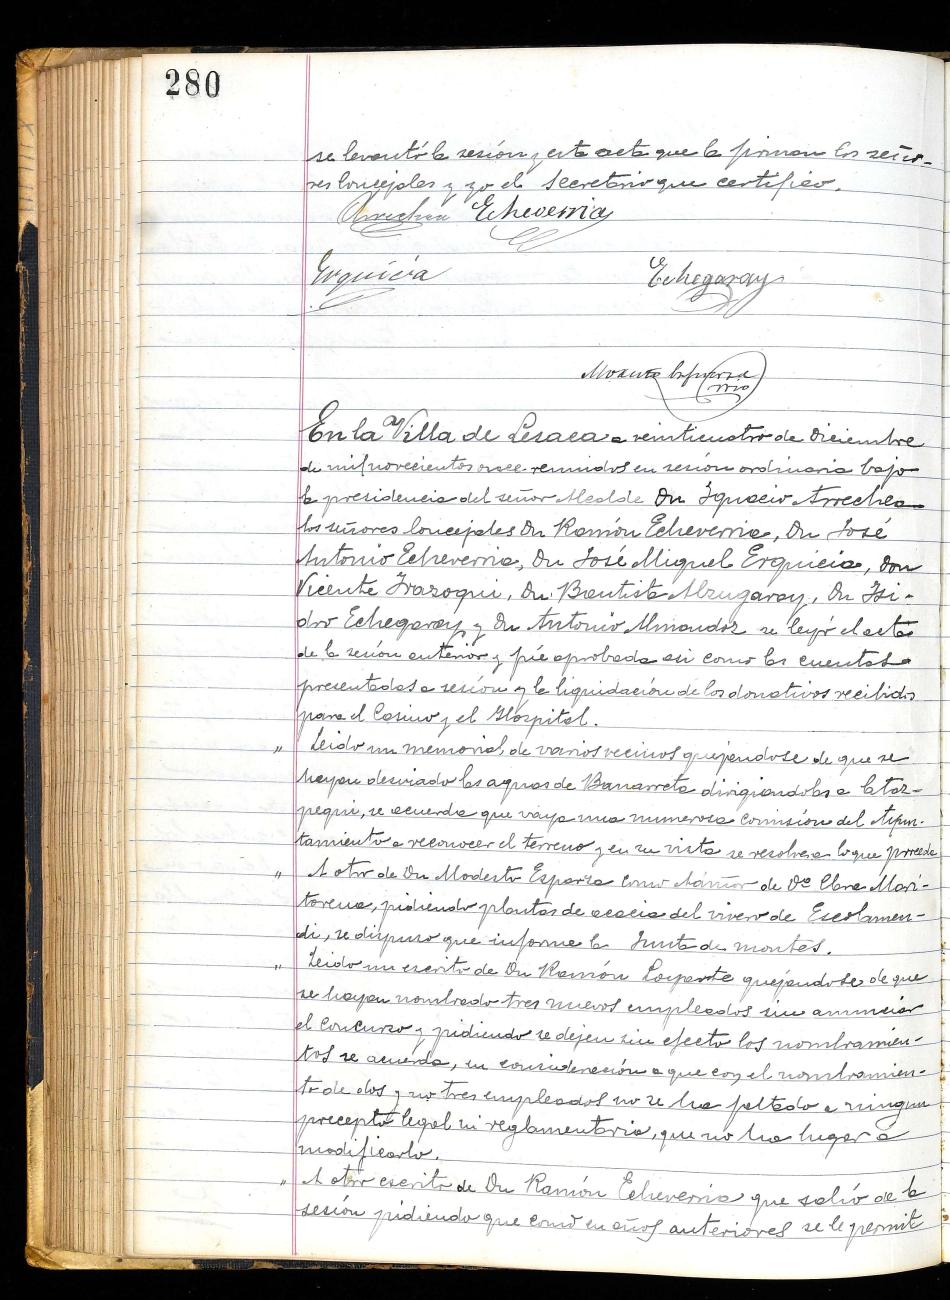 280
se levantó la sesión y esta acta que la firman los seño-
res Concejales y yo el Secretario que certifico.
Arrechea Echeverria
Erquicia Echegaray
Modesto Esparza
srio
En la Villa de Lesaca a veinticuatro de Diciembre
de mil novecientos once reunidos en sesión ordinaria bajo
la presidencia del señor Alcalde Dn Ignacio Arrechea
los señores Concejales Dn Ramón Echeverria, Dn José
Antonio Echeverria, Dn José Miguel Erquicia, don
Vicente Irazoqui, Dn Bautista Alzugaray, Dn Isi-
dro Echegaray y Dn Antonio Almandoz se leyó el acta
de la sesión anterior y fué aprobada asi como las cuentas
presentadas a sesión y la liquidación de los donativos recibidos
para el Casino y el Hospital.
" Leido un memorial de varios vecinos quejandose de que se
hayan desviado las aguas de Banarreta dirigiendolas a
pegui, se acuerda que vaya una numerosa comisión del Ayun-
tamiento a reconocer el terreno y en su vista se resolvera lo que proceda
" A otro de Dn Modesto Esparza como Admor de Da Clara Mari-
torena, pidiendo plantas de acacia del vivero de Escolamen-
di, se dispuso que informe la Junta de montes.
" Leido un escrito de Dn Ramón Loyarte quejandose de que
se hayan nombrado tres nuevos empleados sin anunciar
el concurso y pidiendo se dejen sin efecto los nombramien-
tos se acuerda, en consideración a que con el nombramien-
to de dos y no tres empleados no se ha faltado a ningun
precepto legal ni reglamentario, que no ha lugar a
modificarlo.
" A otro escrito de Dn Ramón Echeverria que salió de la
sesión pidiendo que como en años anteriores se le permit